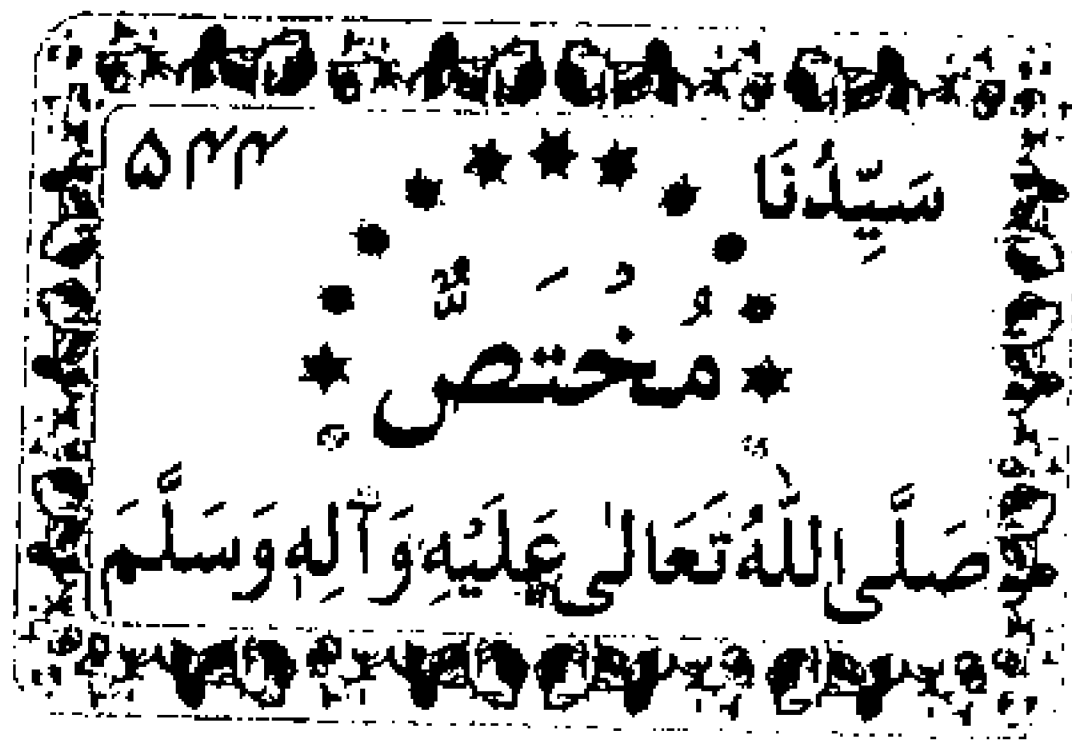 سَيِّدُنَا ۵۴۴
مُخْتَصٌّ
صَلَّى اللّٰهُ تَعَالىٰ عَلَيْهِ وَآلِهٖ وَسَلَّمَ